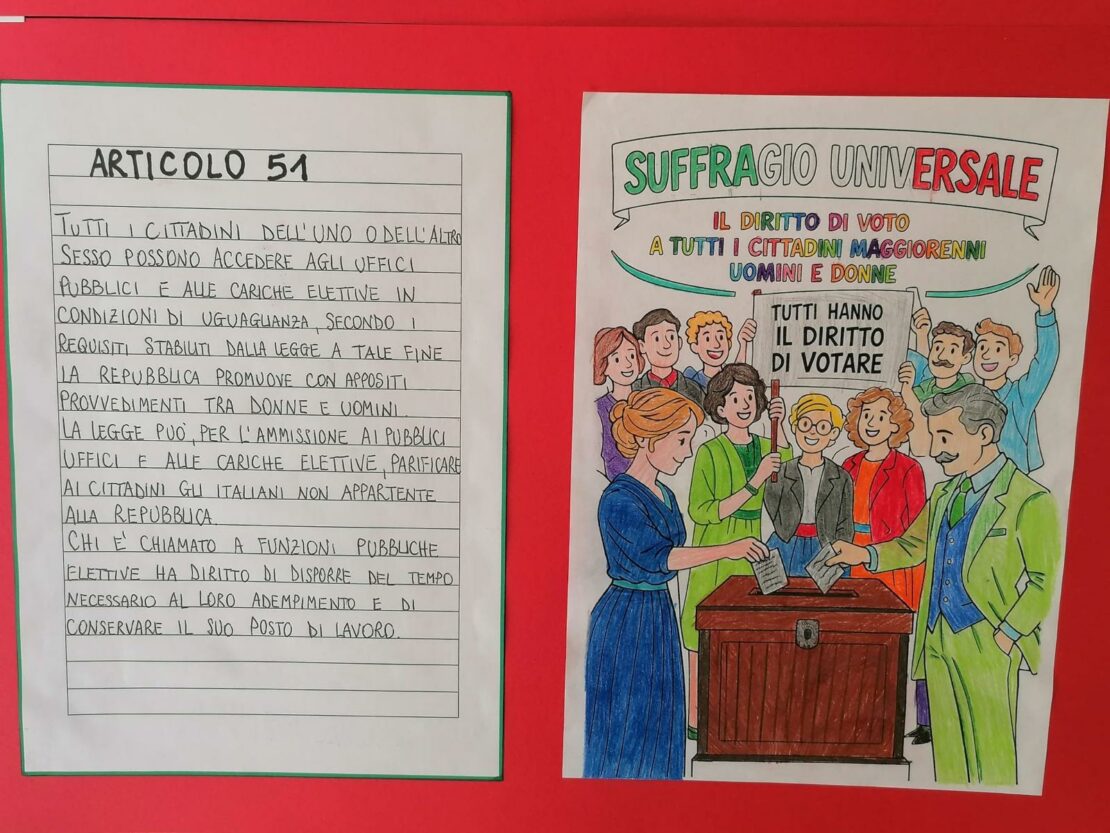 ARTICOLO 51
TUTTI I CITTADINI DELL'UNO O DELL'ALTRO
SESSO POSSONO ACCEDERE AGLI UFFICI
PUBBLICI E ALLE CARICHE ELETTIVE IN
CONDIZIONI DI UGUAGLIANZA, SECONDO I
REQUISITI STABILITI DALLA LEGGE A TALE FINE
LA REPUBBLICA PROMUOVE CON APPOSITI
PROVVEDIMENTI TRA DONNE E UOMINI.
LA LEGGE PUÒ, PER L'AMMISSIONE AI PUBBLICI
UFFICI E ALLE CARICHE ELETTIVE, PARIFICARE
AI CITTADINI GLI ITALIANI NON APPARTENTE
ALLA REPUBBLICA.
CHI E' CHIAMATO A FUNZIONI PUBBLICHE
ELETTIVE HA DIRITTO DI DISPORRE DEL TEMPO
NECESSARIO AL LORO ADEMPIMENTO E DI
CONSERVARE IL SUO POSTO DI LAVORO.
SUFFRAGIO UNIVERSALE
IL DIRITTO DI VOTO
A TUTTI I CITTADINI MAGGIORENNI
UOMINI E DONNE
TUTTI HANNO
IL DIRITTO
DI VOTARE